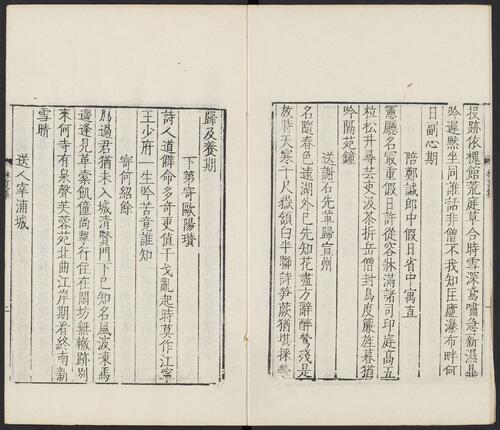 投跡依槐館荒庭草合時雪深鳶嘯急薪濕鼎
吟遲黙坐同誰話非僧不我知匡廬瀑布畔何
日副心期
陪鄭誠郎中假日省中寓直
憲廳名最重假日許從容牀滿諸司印庭高五
粒松井尋芸吏汲茶拆岳僧封鳥度簾旌暮猶
吟隔苑鐘
送謝石先輩歸宣州
名隨春色遠湖外已先知花盡方辭醉鶯殘是
放時天寒十尺嶽領白半聯詩笋蕨猶堪採
歸及養期
下第寄歐陽瓚
詩人道僻命多奇更值干戈亂起時莫作江寧
王少府一生吟苦竟誰知
寄何紹餘
鴈過君猶未入城清賢門下已知名風波凍馬
遥逢見革槖飢僮尚挈行住在閑坊無轍跡别
來何寺有泉聲芙蓉苑北曲江岸期看終南新
雪晴
送人宰浦城